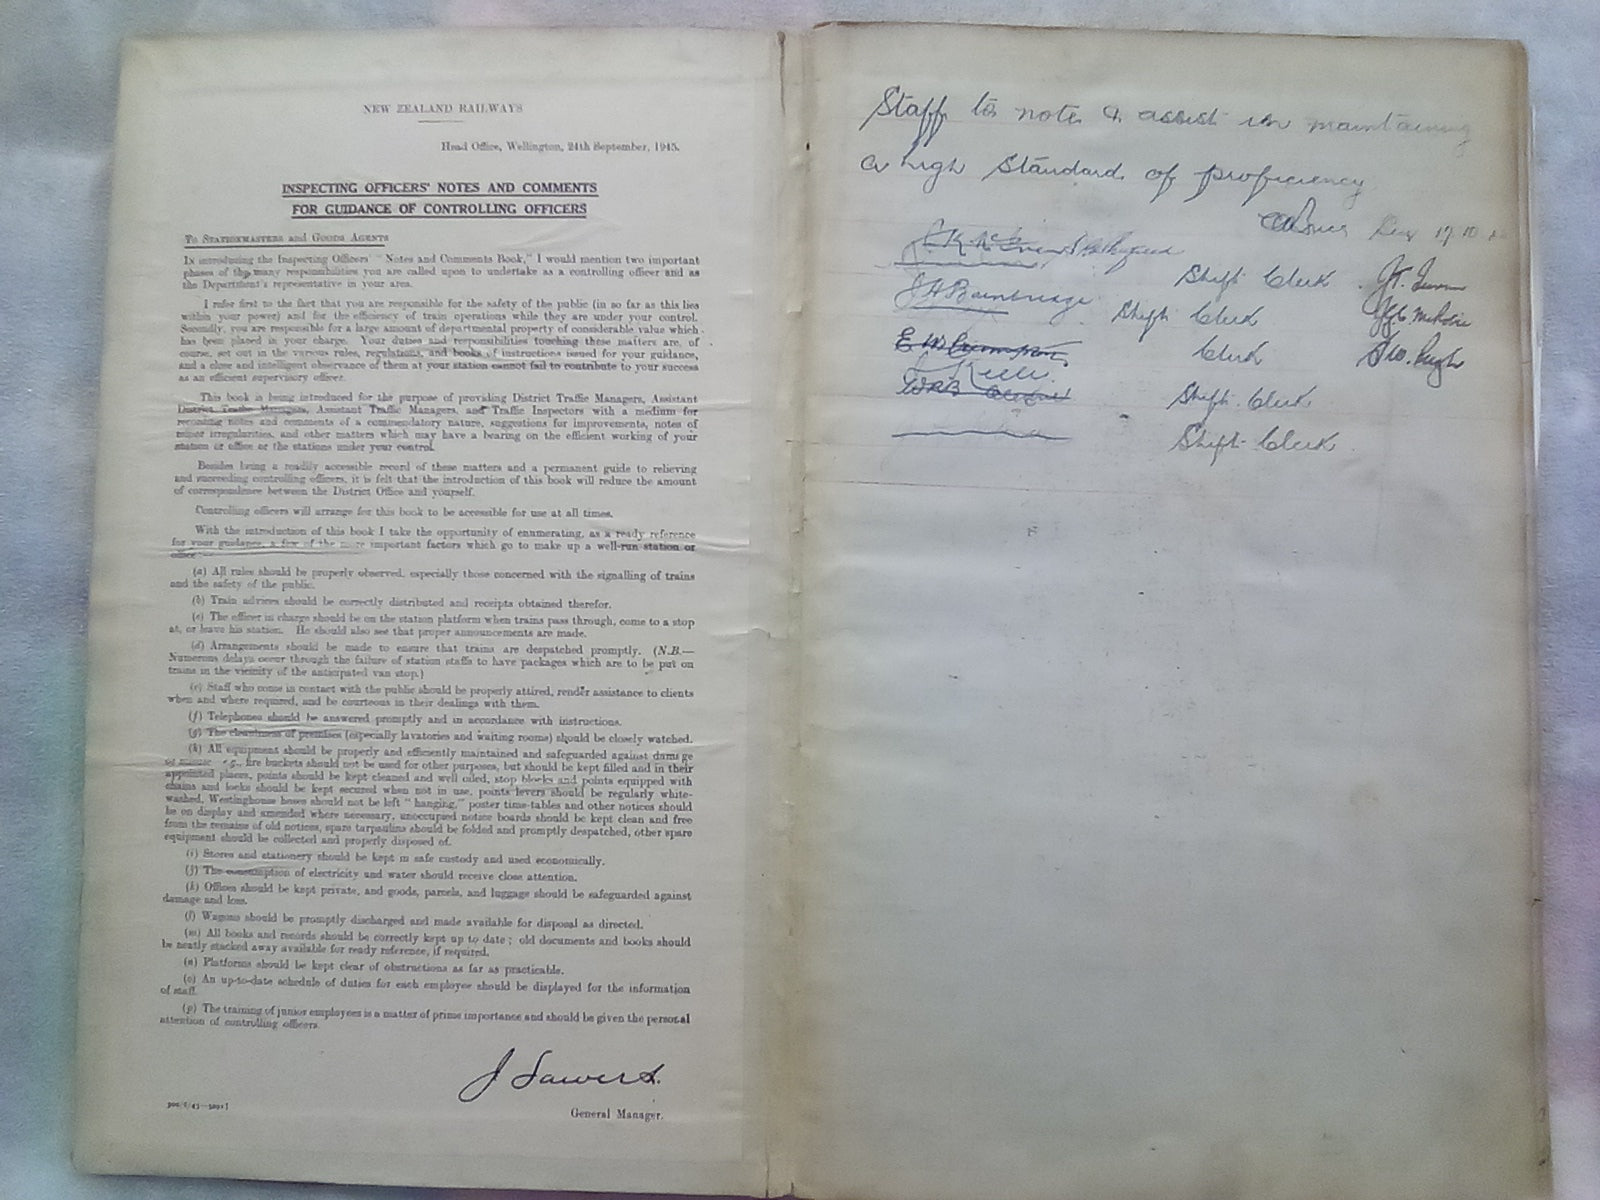 NEW ZEALAND RAILWAYS
Head Office, Wellington, 24th September, 1945.
INSPECTING OFFICERS' NOTES AND COMMENTS
FOR GUIDANCE OF CONTROLLING OFFICERS
To STATIONMASTERS and GOODS AGENTS
In introducing the Inspecting Officers' "Notes and Comments Book," I would mention two important
phases of the many responsibilities you are called upon to undertake as a controlling officer and as
the Department's representative in your area.
I refer first to the fact that you are responsible for the safety of the public (in so far as this lies
within your power) and for the efficiency of train operations while they are under your control.
Secondly, you are responsible for a large amount of departmental property of considerable value which
has been placed in your charge. Your duties and responsibilities touching these matters are, of
course, set out in the various rules, regulations, and books of instructions issued for your guidance,
and a close and intelligent observance of them at your station cannot fail to contribute to your success
as an efficient supervisory officer.
This book is being introduced for the purpose of providing District Traffic Managers, Assistant
District Traffic Managers, Assistant Traffic Managers, and Traffic Inspectors with a medium for
recording notes and comments of a commendatory nature, suggestions for improvements, notes of
minor irregularities, and other matters which may have a bearing on the efficient working of your
station or office or the stations under your control.
Besides being a readily accessible record of these matters and a permanent guide to relieving
and succeeding controlling officers, it is felt that the introduction of this book will reduce the amount
of correspondence between the District Office and yourself.
Controlling officers will arrange for this book to be accessible for use at all times.
With the introduction of this book I take the opportunity of enumerating, as a ready reference
for your guidance, a few of the more important factors which go to make up a well-run station or
office:—
(a) All rules should be properly observed, especially those concerned with the signalling of trains
and the safety of the public.
(b) Train advices should be correctly distributed and receipts obtained therefor.
(c) The officer in charge should be on the station platform when trains pass through, come to a stop
at, or leave his station. He should also see that proper announcements are made.
(d) Arrangements should be made to ensure that trains are despatched promptly. (N.B.—
Numerous delays occur through the failure of station staffs to have packages which are to be put on
trains in the vicinity of the anticipated van stop.)
(e) Staff who come in contact with the public should be properly attired, render assistance to clients
when and where required, and be courteous in their dealings with them.
(f) Telephones should be answered promptly and in accordance with instructions.
(g) The cleanliness of premises (especially lavatories and waiting rooms) should be closely watched.
(h) All equipment should be properly and efficiently maintained and safeguarded against damage
or misuse e.g., fire buckets should not be used for other purposes, but should be kept filled and in their
appointed places, points should be kept cleaned and well oiled, stop blocks and points equipped with
chains and locks should be kept secured when not in use, points levers should be regularly white-
washed, Westinghouse hoses should not be left "hanging," poster time-tables and other notices should
be on display and amended where necessary, unoccupied notice boards should be kept clean and free
from the remains of old notices, spare tarpaulins should be folded and promptly despatched, other spare
equipment should be collected and properly disposed of.
(i) Stores and stationery should be kept in safe custody and used economically.
(j) The consumption of electricity and water should receive close attention.
(k) Offices should be kept private, and goods, parcels, and luggage should be safeguarded against
damage and loss.
(l) Wagons should be promptly discharged and made available for disposal as directed.
(m) All books and records should be correctly kept up to date; old documents and books should
be neatly stacked away available for ready reference, if required.
(n) Platforms should be kept clear of obstructions as far as practicable.
(o) An up-to-date schedule of duties for each employee should be displayed for the information
of staff.
(p) The training of junior employees is a matter of prime importance and should be given the personal
attention of controlling officers.
J Sawers.
General Manager.
Staff to note & assist in maintaining
a high standard of proficiency
17.10
Shift Clerk
J H Bainbridge Shift Clerk
Clerk
Shift Clerk
Shift Clerk